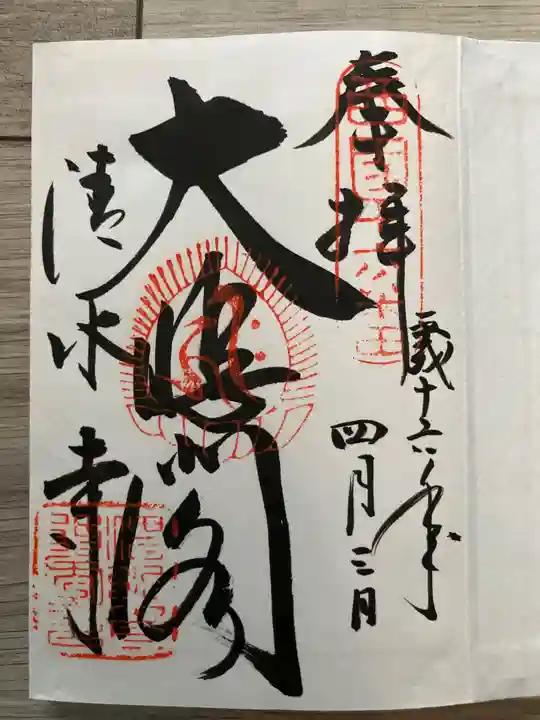 奉拝
十六年
四月三日
大悲閣
清水寺